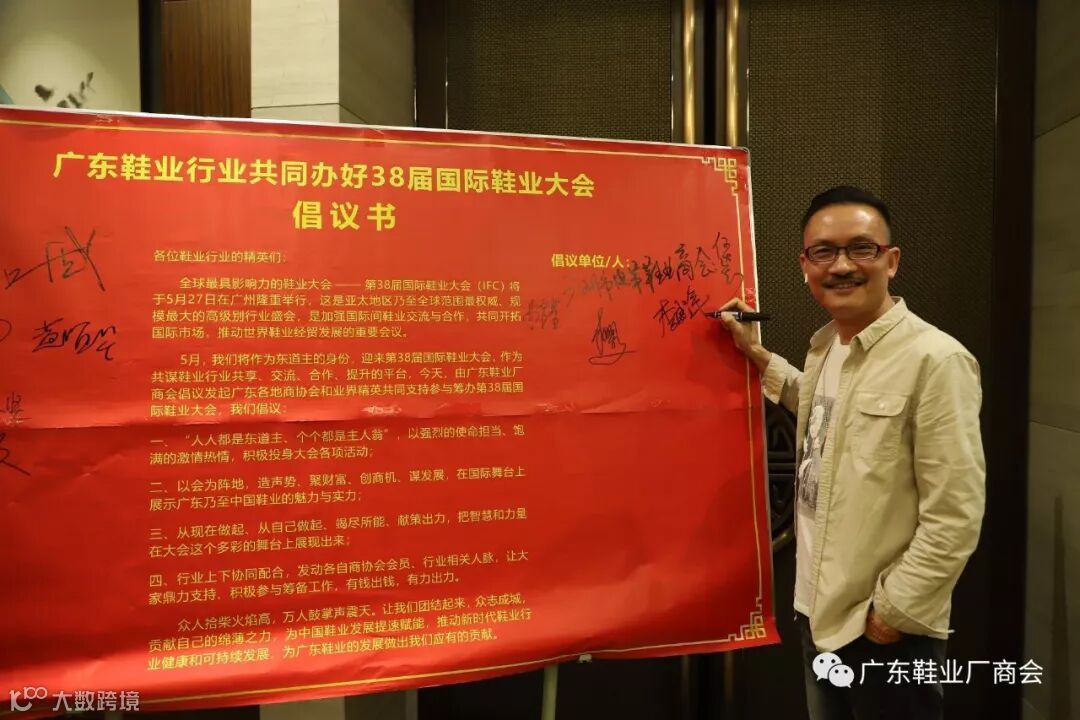 广东鞋业行业共同办好38届国际鞋业大会
倡议书
各位鞋业行业的精英们：
全球最具影响力的鞋业大会 —— 第38届国际鞋业大会（IFC）将
于5月27日在广州隆重举行，这是亚太地区乃至全球范围最权威、规
模最大的高级别行业盛会，是加强国际间鞋业交流与合作，共同开拓
国际市场，推动世界鞋业经贸发展的重要会议。
5月，我们将作为东道主的身份，迎来第38届国际鞋业大会，作为
共谋鞋业行业共享、交流、合作、提升的平台，今天，由广东鞋业厂
商会倡议发起广东各地商协会和业界精英共同支持参与筹办第38届国
际鞋业大会，我们倡议：
一、“人人都是东道主、个个都是主人翁”，以强烈的使命担当、饱
满的激情热情，积极投身大会各项活动；
二、以会为阵地，造声势、聚财富、创商机、谋发展，在国际舞台上
展示广东乃至中国鞋业的魅力与实力；
三、从现在做起、从自己做起、竭尽所能、献策出力，把智慧和力量
在大会这个多彩的舞台上展现出来；
四、行业上下协同配合，发动各自商协会会员、行业相关人脉，让大
家鼎力支持、积极参与筹备工作，有钱出钱，有力出力。
众人拾柴火焰高，万人鼓掌声震天。让我们团结起来，众志成城，
贡献自己的绵薄之力，为中国鞋业发展提速赋能，推动新时代鞋业行
业健康和可持续发展，为广东鞋业的发展做出我们应有的贡献。
倡议单位/人：
鞋业商会
大数跨境
广东鞋业厂商会